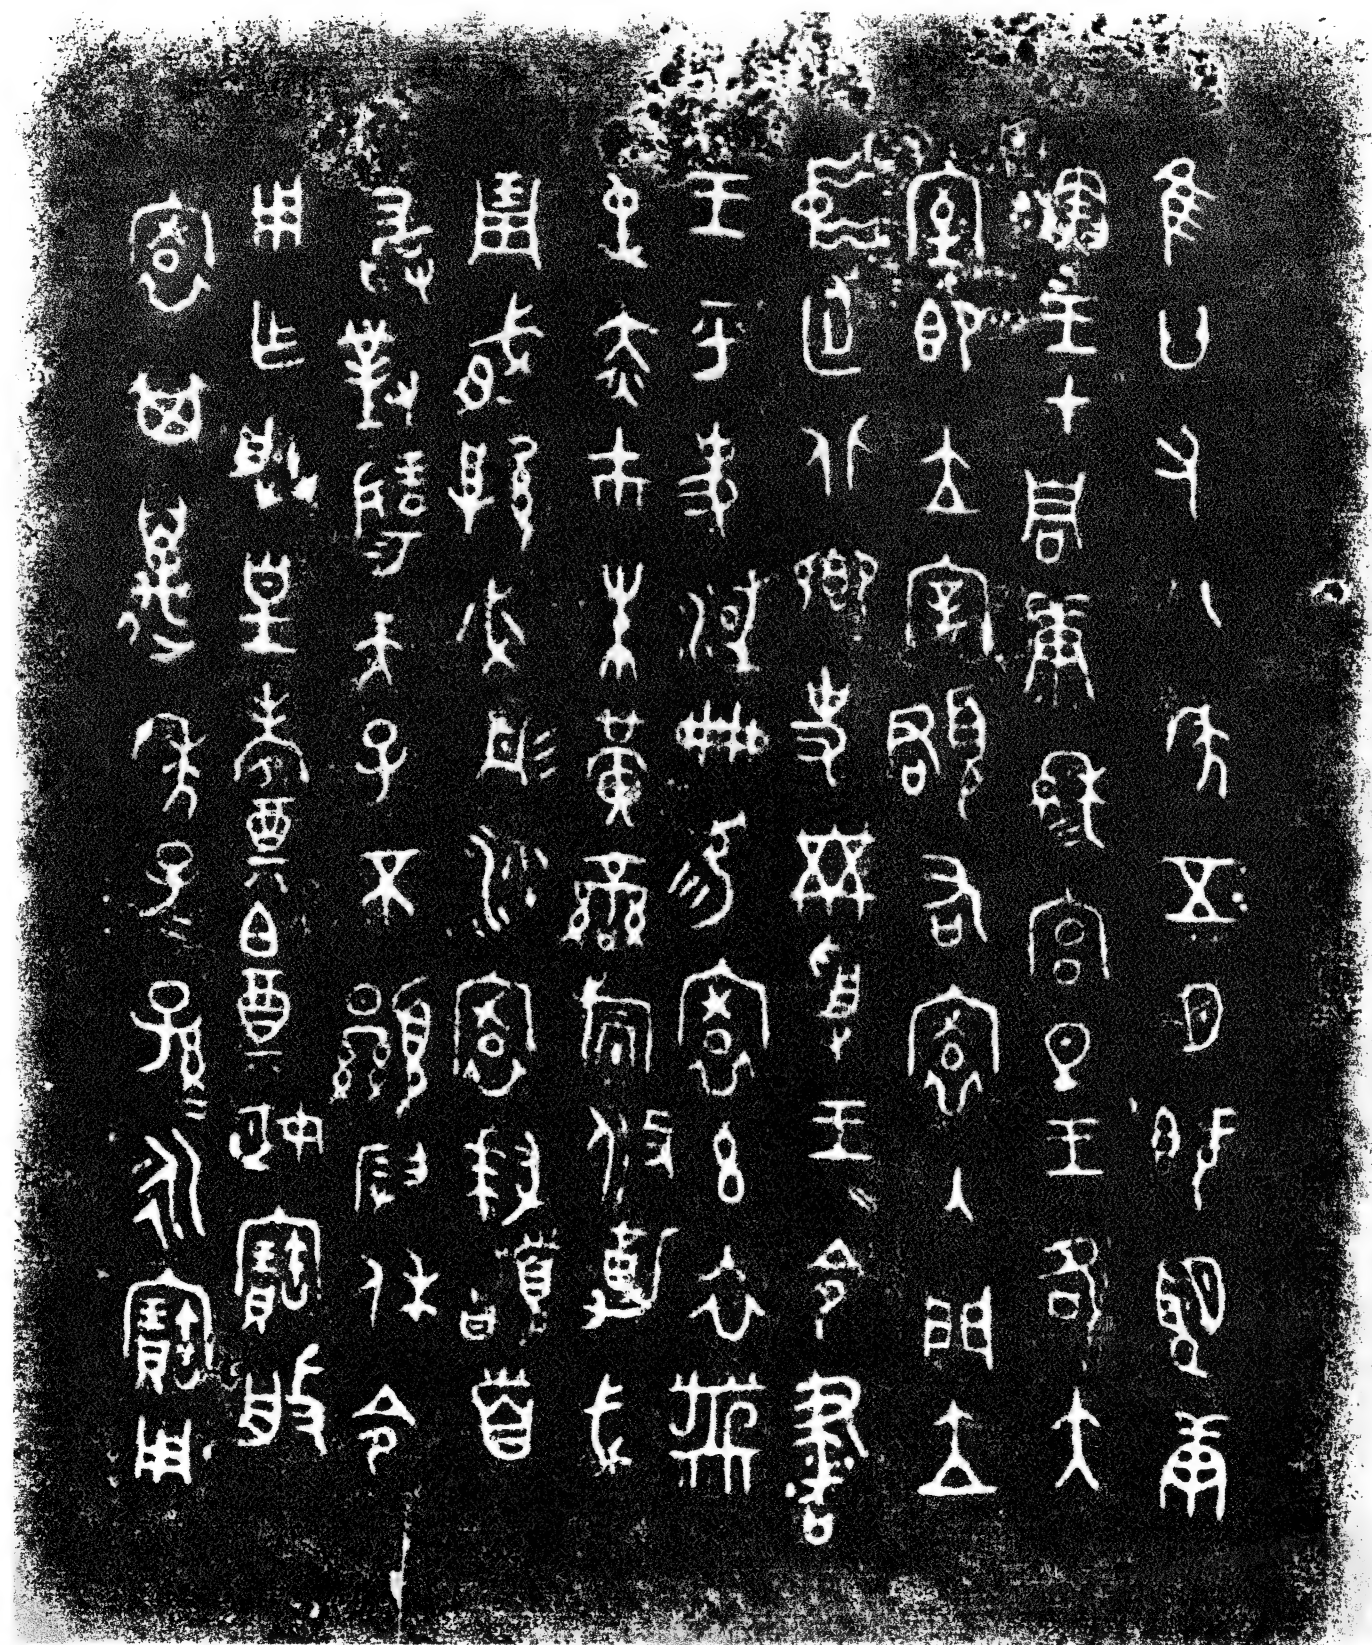 隹廿又八年五月既望庚
寅王才周康穆宮旦王各大
室即立宰頵右寰入門立
中廷北鄉史黹受王令書
王乎史淢冊易寰玄衣黹
屯赤巿朱黃䜌旂攸勒戈
琱㦸厚必彤沙寰拜𩒨首
敢對揚天子不顯叚休令
用乍朕皇考奠白奠姬寶般
寰其萬年子子孫孫永寶用